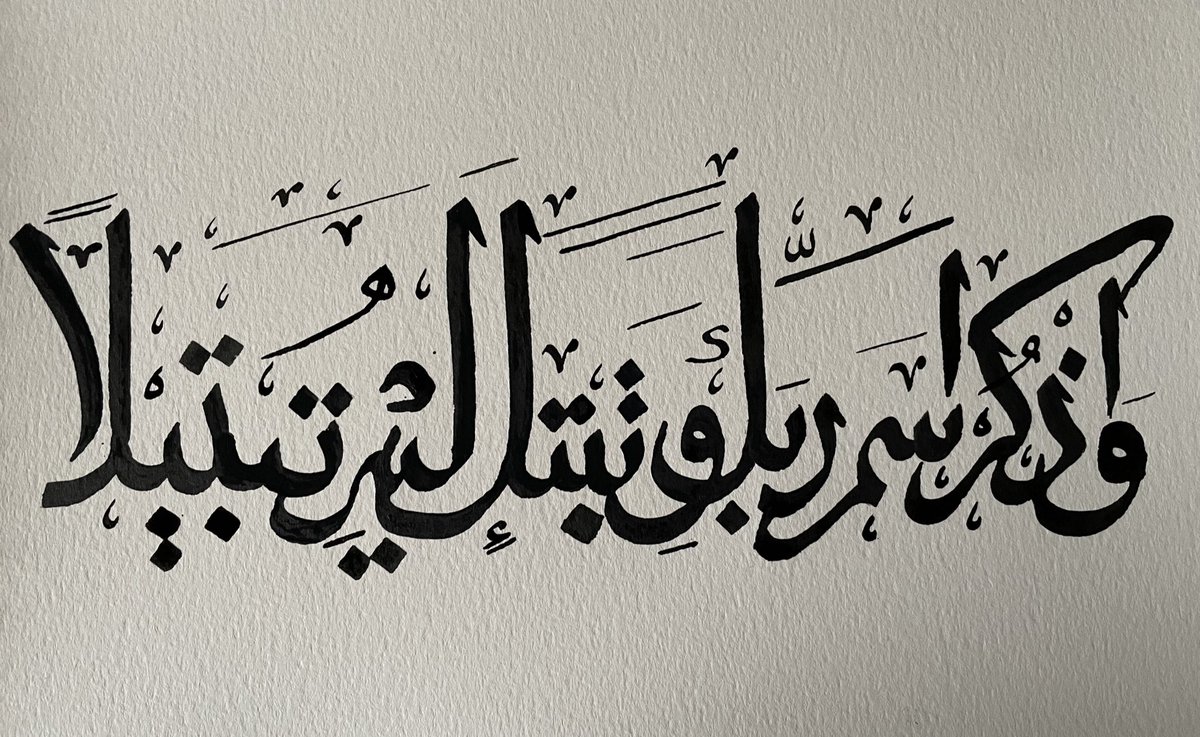 وَاذْكُرِ اسْمَ رَبِّكَ وَتَبَتَّلْ إِلَيْهِ تَبْتِيلًا